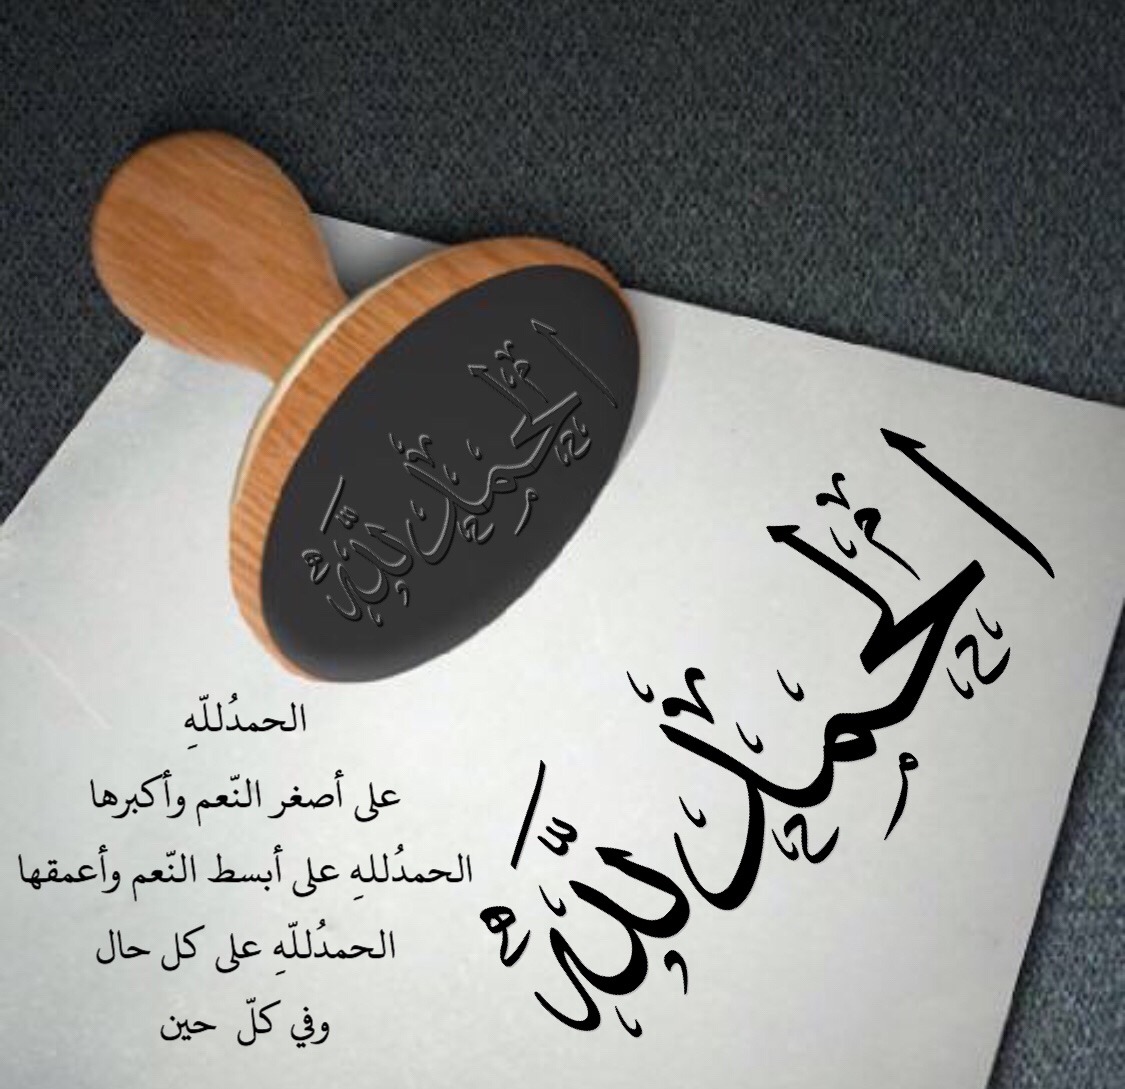 الحمد لله
الحمد لله
الحمدُللّهِ
على أصغر النّعم وأكبرها
الحمدُللهِ على أبسط النّعم وأعمقها
الحمدُللّهِ على كل حال
وفي كلّ حين